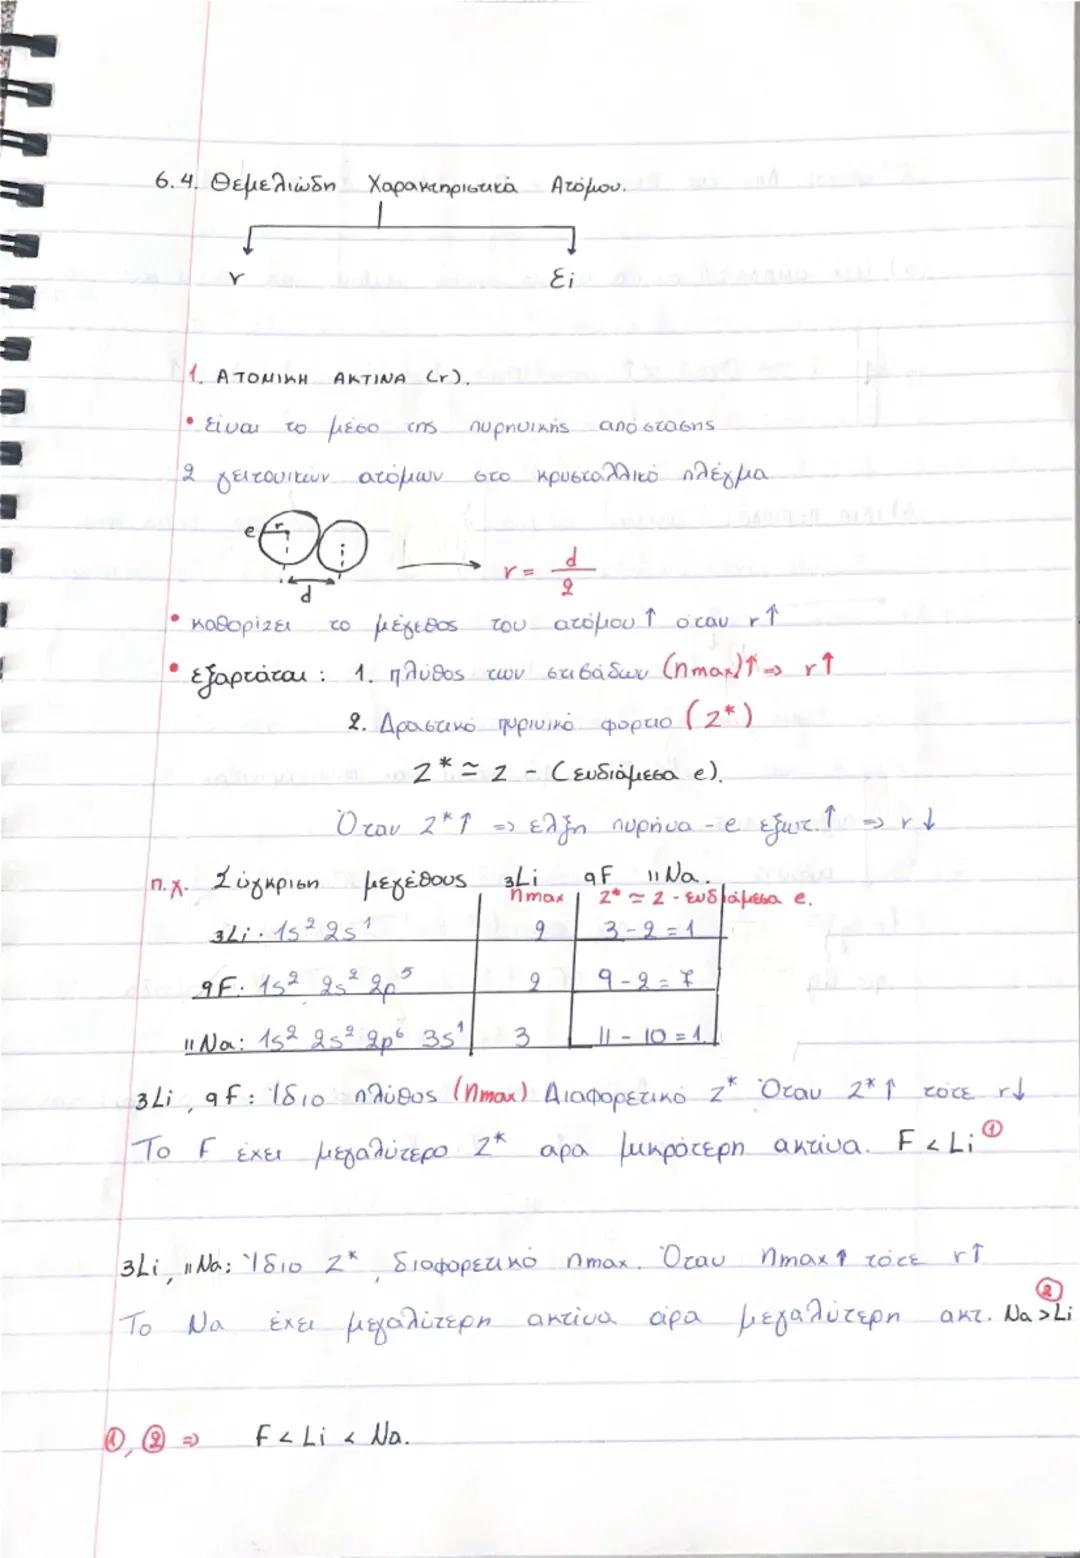 6.4. Θεμελιώδη Χαρακτηριστικά Ατόμου.
r εi
1. ΑΤΟΜΙΚΗ ΑΚΤΙΝΑ (r).
• είναι το μέσο της πυρηνικής απόστασης
2 γειτονικών ατόμων στο κρυσταλλικό πλέγμα
e r
d
r = d/2
• καθορίζει το μέγεθος του ατόμου ↑ όταν r↑
• εξαρτάται : 1. πλύθος των στιβάδων (nmax)↑ => r↑
2. Δραστικό πυρινικό φορτιο (Z*)
Z* ≃ Z - (ενδιάμεσα e).
Όταν Z*↑ => έλξη πυρήνα - e εξωτ.↑ => r↓
π.χ. Σύγκριση μεγέθους ₃Li ₉F ₁₁Na.
nmax Z* ≃ Z - ενδιάμεσα e.
₃Li: 1s² 2s¹ 2 3-2=1
₉F: 1s² 2s² 2p⁵ 2 9-2=7
₁₁Na: 1s² 2s² 2p⁶ 3s¹ 3 11-10=1.
₃Li, ₉F: Ίδιο πλύθος (nmax) Διαφορετικό Z* Όταν Z*↑ τότε r↓
Το F έχει μεγαλύτερο Z* αρα μικρότερη ακτίνα. F < Li ①
₃Li, ₁₁Na: Ίδιο Z*, διαφορετικό nmax. Όταν nmax↑ τότε r↑
Το Na έχει μεγαλύτερη ακτίνα άρα μεγαλύτερη ακτ. Na > Li ②
①, ② => F < Li < Na.